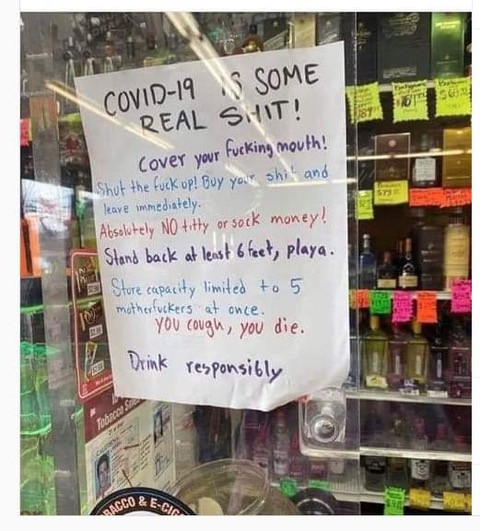 COVID-19 IS SOME
REAL SHIT!
Cover your fucking mouth!
Shut the fuck up! Buy your shit and
leave immediately.
Absolutely NO titty or sock money!
Stand back at least 6 feet, playa.
Store capacity limited to 5
motherfuckers at once.
YOU cough, you die.
Drink responsibly
Tobacco
BACCO & E-CIG